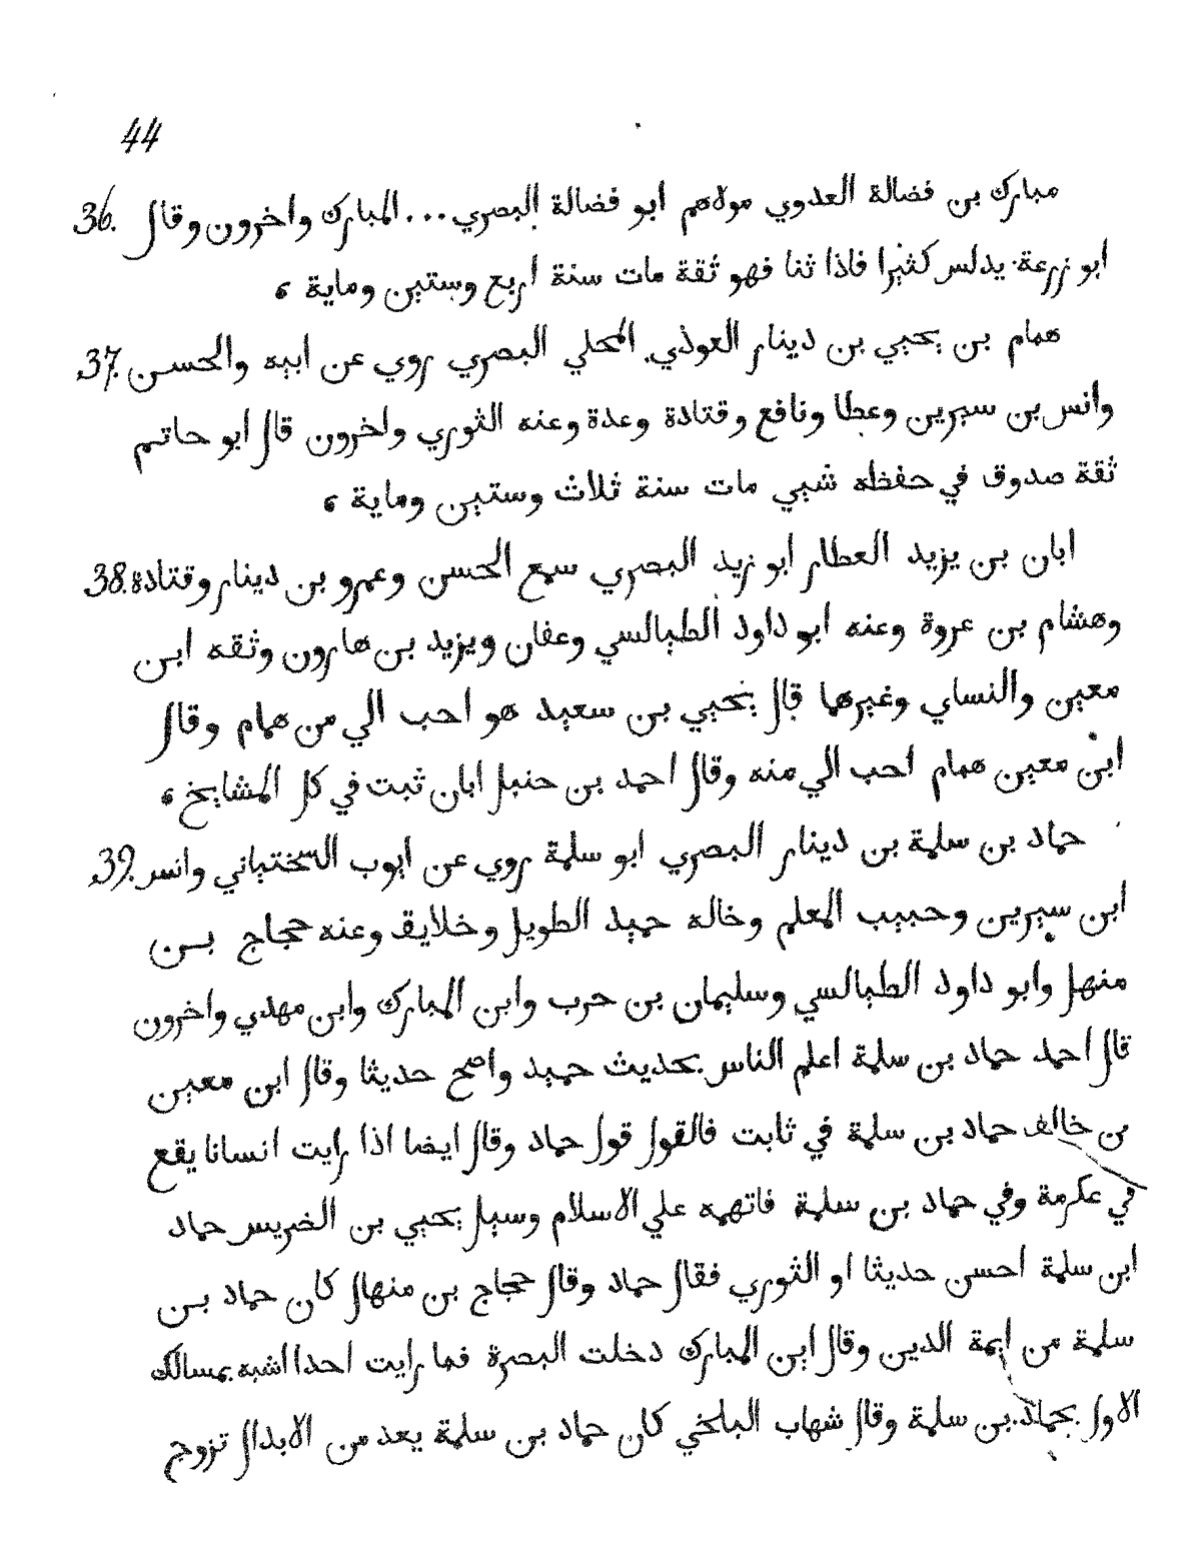 44
36. مبارك بن فضالة العدوي مولاهم ابو فضالة البصري ... المبارك واخرون وقال
ابو زرعة يدلس كثيرا فاذا ثنا فهو ثقة مات سنة اربع وستين وماية ،
37. همام بن يحيي بن دينار العوذي المحلي البصري روي عن ابيه والحسن
وانس بن سيرين وعطا ونافع وقتادة وعدة وعنه الثوري واخرون قال ابو حاتم
ثقة صدوق في حفظه شيي مات سنة ثلاث وستين وماية ،
38. ابان بن يزيد العطار ابو زيد البصري سمع الحسن وعمرو بن دينار وقتادة
وهشام بن عروة وعنه ابو داود الطيالسي وعفان ويزيد بن هارون وثقه ابن
معين والنساي وغيرهما قال يحيي بن سعيد هو احب الي من همام وقال
ابن معين همام احب الي منه وقال احمد بن حنبل ابان ثبت في كل المشايخ ،
39. حماد بن سلمة بن دينار البصري ابو سلمة روي عن ايوب السختياني وانس
ابن سيرين وحبيب المعلم وخاله حميد الطويل وخلايق وعنه حجاج بن
منهل وابو داود الطيالسي وسليمان بن حرب وابن المبارك وابن مهدي واخرون
قال احمد حماد بن سلمة اعلم الناس بحديث حميد واصح حديثا وقال ابن معين
من خالف حماد بن سلمة في ثابت فالقول قول حماد وقال ايضا اذا رايت انسانا يقع
في عكرمة وفي حماد بن سلمة فاتهمه علي الاسلام وسيل يحيي بن الضريس حماد
ابن سلمة احسن حديثا او الثوري فقال حماد وقال حجاج بن منهال كان حماد بن
سلمة من ايمة الدين وقال ابن المبارك دخلت البصرة فما رايت احدا اشبه بمسالك
الاول بحماد بن سلمة وقال شهاب البلخي كان حماد بن سلمة يعد من الابدال تزوج